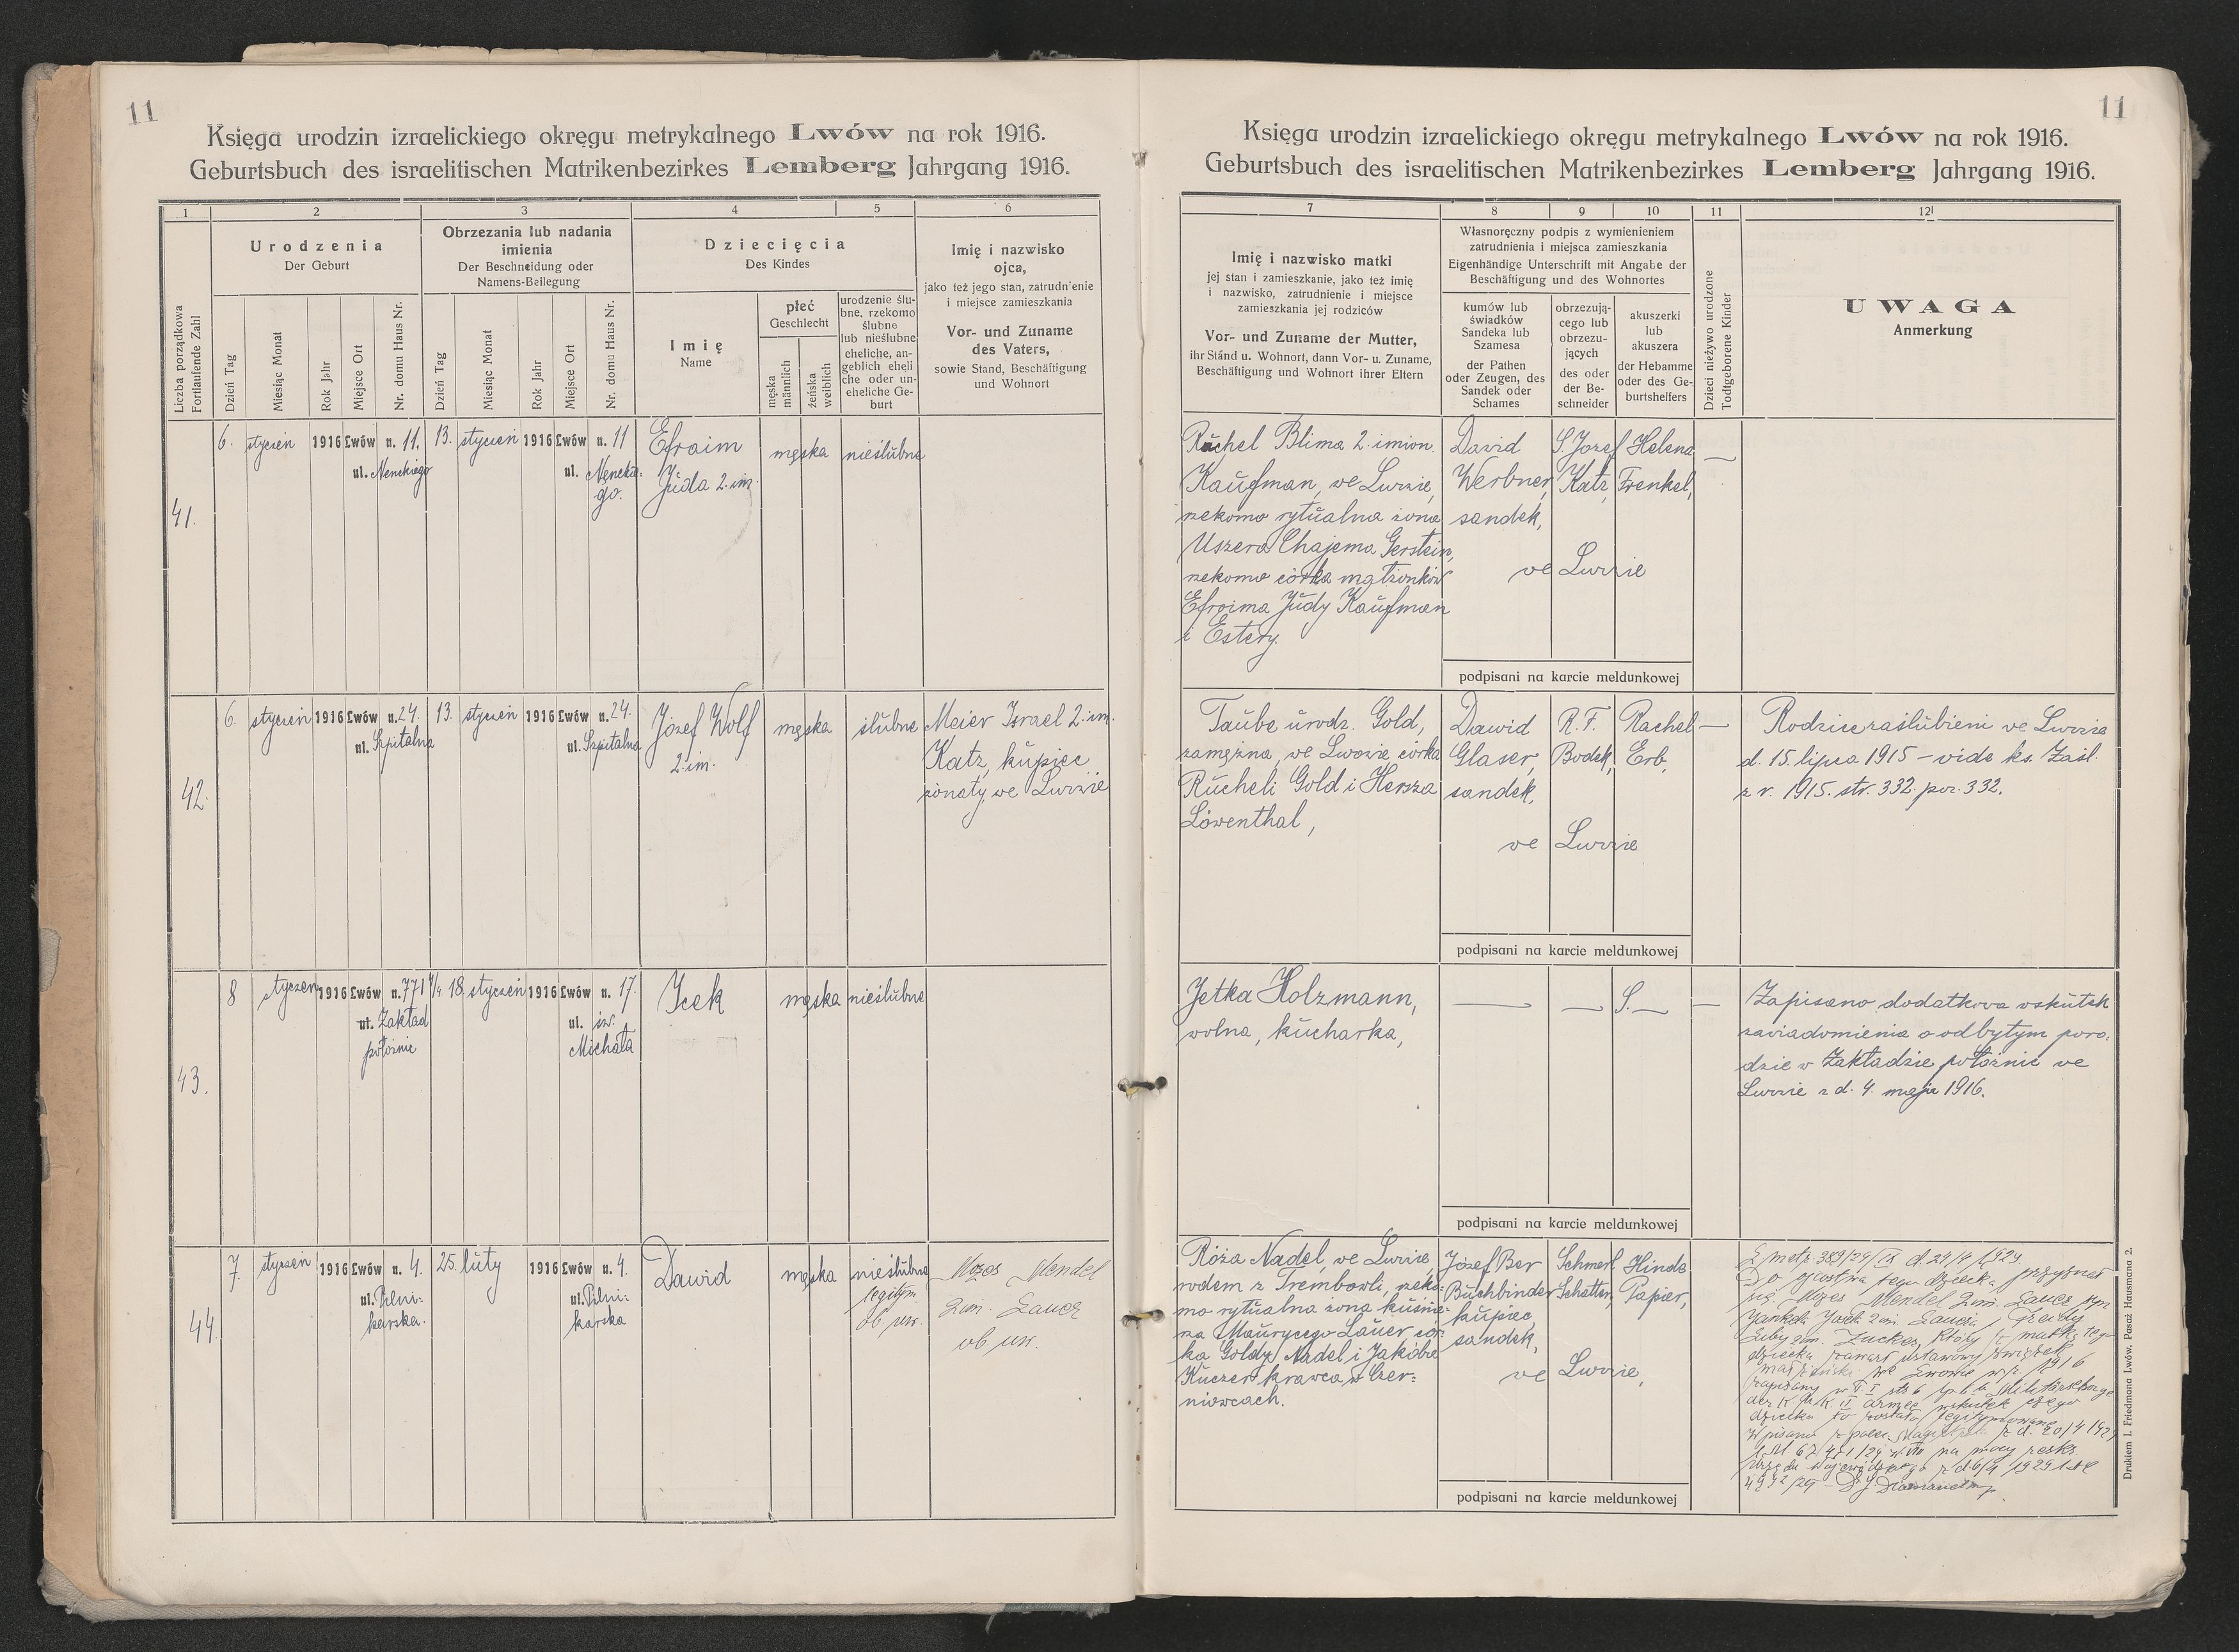 11
Księga urodzin izraelickiego okręgu metrykalnego Lwów na rok 1916.
Geburtsbuch des israelitischen Matrikenbezirkes Lemberg Jahrgang 1916.
1 2 3 4 5 6
Liczba porządkowa
Fortlaufende Zahl
Urodzenia
Der Geburt
Dzień Tag
Miesiąc Monat
Rok Jahr
Miejsce Ort
Nr. domu Haus Nr.
Obrzezania lub nadania
imienia
Der Beschneidung oder
Namens-Beilegung
Dzień Tag
Miesiąc Monat
Rok Jahr
Miejsce Ort
Nr. domu Haus Nr.
Dziecięcia
Des Kindes
Imię
Name
płeć
Geschlecht
męska
männlich
żeńska
weiblich
urodzenie ślu-
bne, rzekomo
ślubne
lub nieślubne
eheliche, an-
geblich eheli
che oder un-
eheliche Ge-
burt
Imię i nazwisko
ojca,
jako też jego stan, zatrudn'enie
i miejsce zamieszkania
Vor- und Zuname
des Vaters,
sowie Stand, Beschäftigung
und Wohnort
41.
6. styczeń 1916 Lwów n. 11.
ul. Nenckiego
13. styczeń 1916 Lwów n. 11
ul. Nencko-
go.
Efroim
Juda 2. im.
męska
nieślubne
42.
6. styczeń 1916 Lwów n. 24.
ul. Szpitalna
13. styczeń 1916 Lwów n. 24.
ul. Szpitalna
Józef Wolf
2. im.
męska
ślubne
Meier Israel 2. im.
Katz, kupiec
żonaty, we Lwowie
43.
8 styczeń 1916 Lwów n. 771
ul. Zakład
położnic
18. styczeń 1916 Lwów n. 17.
ul. św.
Michała
Icek
męska
nieślubne
44.
7. styczeń 1916 Lwów n. 4.
ul. Pilni-
karska.
25. luty 1916 Lwów n. 4.
ul. Pilni-
karska
Dawid
męska
nieślubne
legitym
ob. uw.
Mozes Mendel
2 im. Lauer
ob uw.
11
Księga urodzin izraelickiego okręgu metrykalnego Lwów na rok 1916.
Geburtsbuch des israelitischen Matrikenbezirkes Lemberg Jahrgang 1916.
7 8 9 10 11 12
Imię i nazwisko matki
jej stan i zamieszkanie, jako też imię
i nazwisko, zatrudnienie i miejsce
zamieszkania jej rodziców
Vor- und Zuname der Mutter,
ihr Stánd u. Wohnort, dann Vor- u. Zuname,
Beschäftigung und Wohnort ihrer Eltern
Własnoręczny podpis z wymienieniem
zatrudnienia i miejsca zamieszkania
Eigenhändige Unterschrift mit Angabe der
Beschäftigung und des Wohnortes
kumów lub
świadków
Sandeka lub
Szamesa
der Pathen
oder Zeugen, des
Sandek oder
Schames
obrzezują-
cego lub
obrzezu-
jących
des oder
der Be-
schneider
akuszerki
lub
akuszera
der Hebamme
oder des Ge-
burtshelfers
Dzieci nieżywo urodzone
Todtgeborene Kinder
UWAGA
Anmerkung
Ruchel Blima 2. imion.
Kaufman, we Lwowie,
rzekomo rytualna żona
Uszera Chajema Gerstein,
rzekomo córka małżonków
Efroima Judy Kaufman
i Estery.
David
Werbner,
sandek,
S. Jozef
Katz,
Helena
Frenkel,
we Lwowie
podpisani na karcie meldunkowej
Taube urodz. Gold,
zamężna, we Lwowie córka
Rucheli Gold i Hersza
Löwenthal,
Dawid
Glaser,
sandek,
R. F.
Bodek,
Rachel
Erb,
we Lwowie
podpisani na karcie meldunkowej
Rodzice zaślubieni we Lwowie
d. 15. lipca 1915 – vide ks. Zaśl.
z r. 1915. str. 332. poz. 332.
Jetka Holzmann,
wolna, kucharka,
— — S. — —
podpisani na karcie meldunkowej
Zapisano dodatkowo wskutek
zawiadomienia o odbytym poro-
dzie w Zakładzie położnic we
Lwowie z d. 4. maja 1916.
Róża Nadel, we Lwowie,
rodem z Trembowli, rzeko-
mo rytualna żona kuśnie-
rza Maurycego Lauer, cór-
ka Goldy Nadel i Jakóba
Kuczer krawca w Czer-
niowcach.
Józef Ber
Buchbinder
kupiec,
sandek,
Schmerl
Schatten,
Hinde
Papier,
we Lwowie,
podpisani na karcie meldunkowej
Do ojcostwa tego dziecka przyznał
się Mozes Mendel 2 im. Lauer syn
małżeński we Lwowie w r. 1916
dziecko to zostało legitymowane
Drukiem I. Friedmana Lwów, Pasaż Hausmana 2.